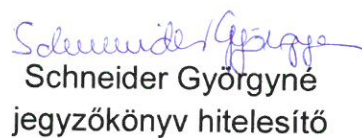 Schneider Györgyné
Schneider Györgyné
jegyzőkönyv hitelesítő